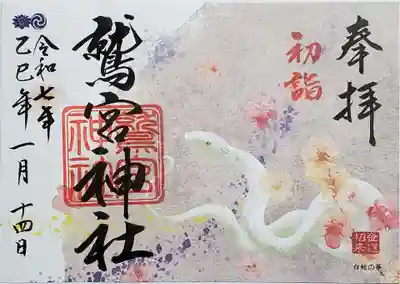 奉拝
初詣
鷲宮神社
鷲宮神社
令和七年
乙巳年 一月 十四日
金運招来
白蛇の夢